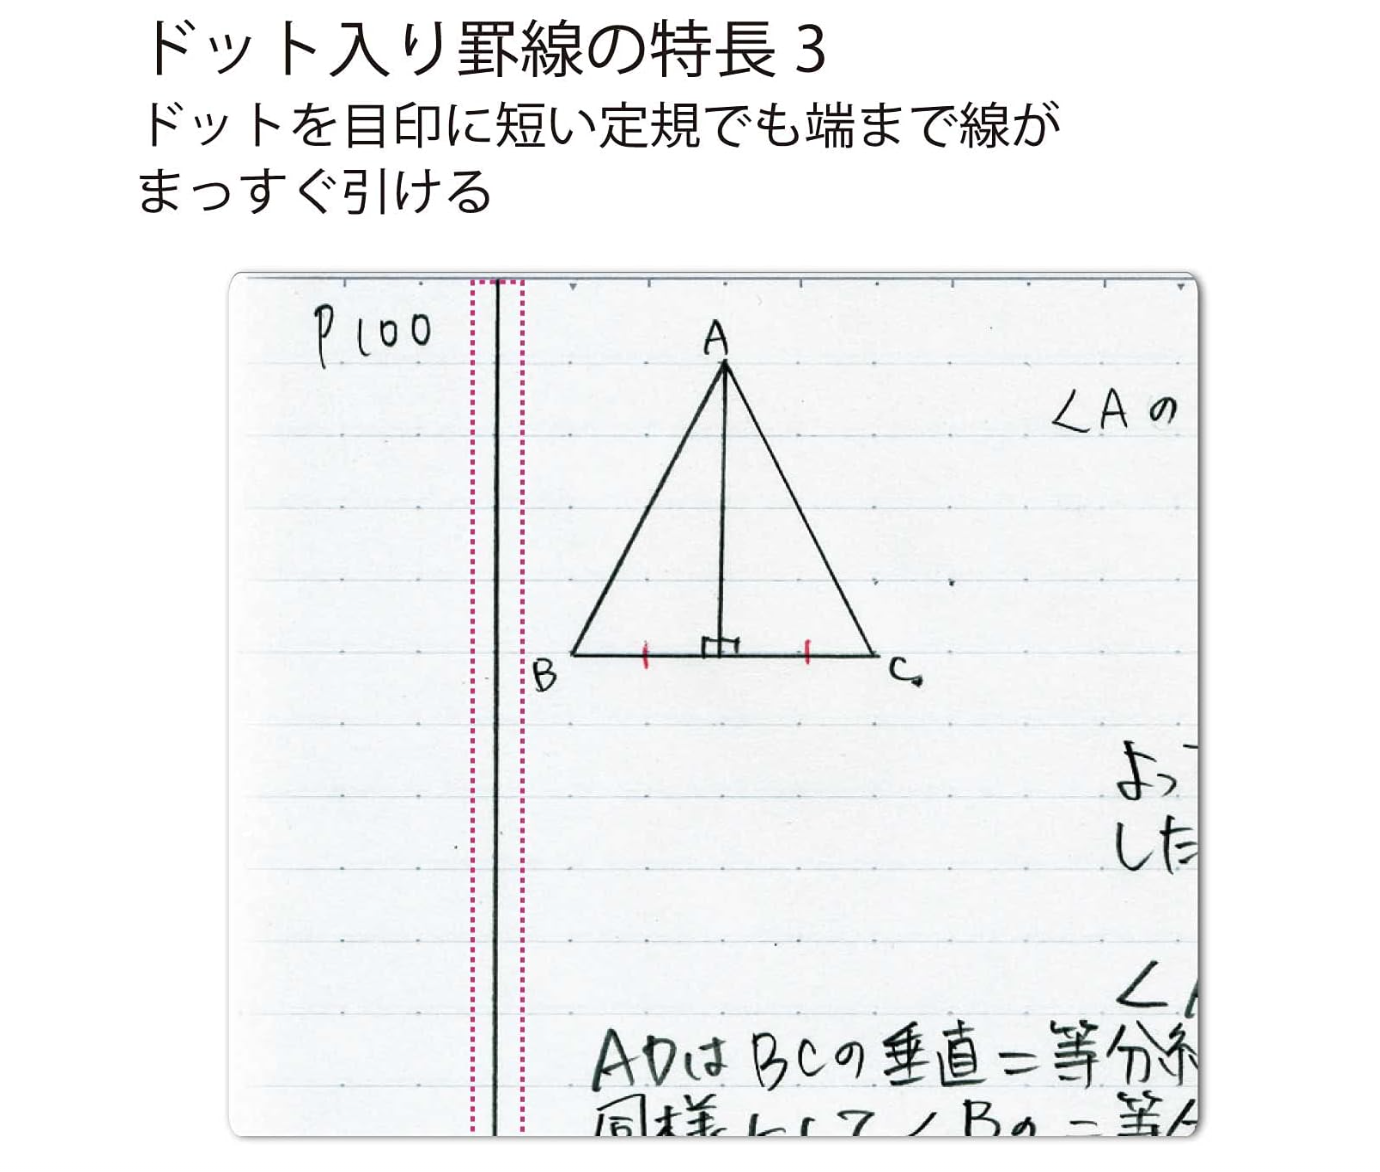 ドット入り罫線の特長 3
ドットを目印に短い定規でも端まで線が
まっすぐ引ける
P100
A
∠Aの
B
C
よっ
した
∠A
ADはBCの垂直二等分
同様にして∠Bの二等